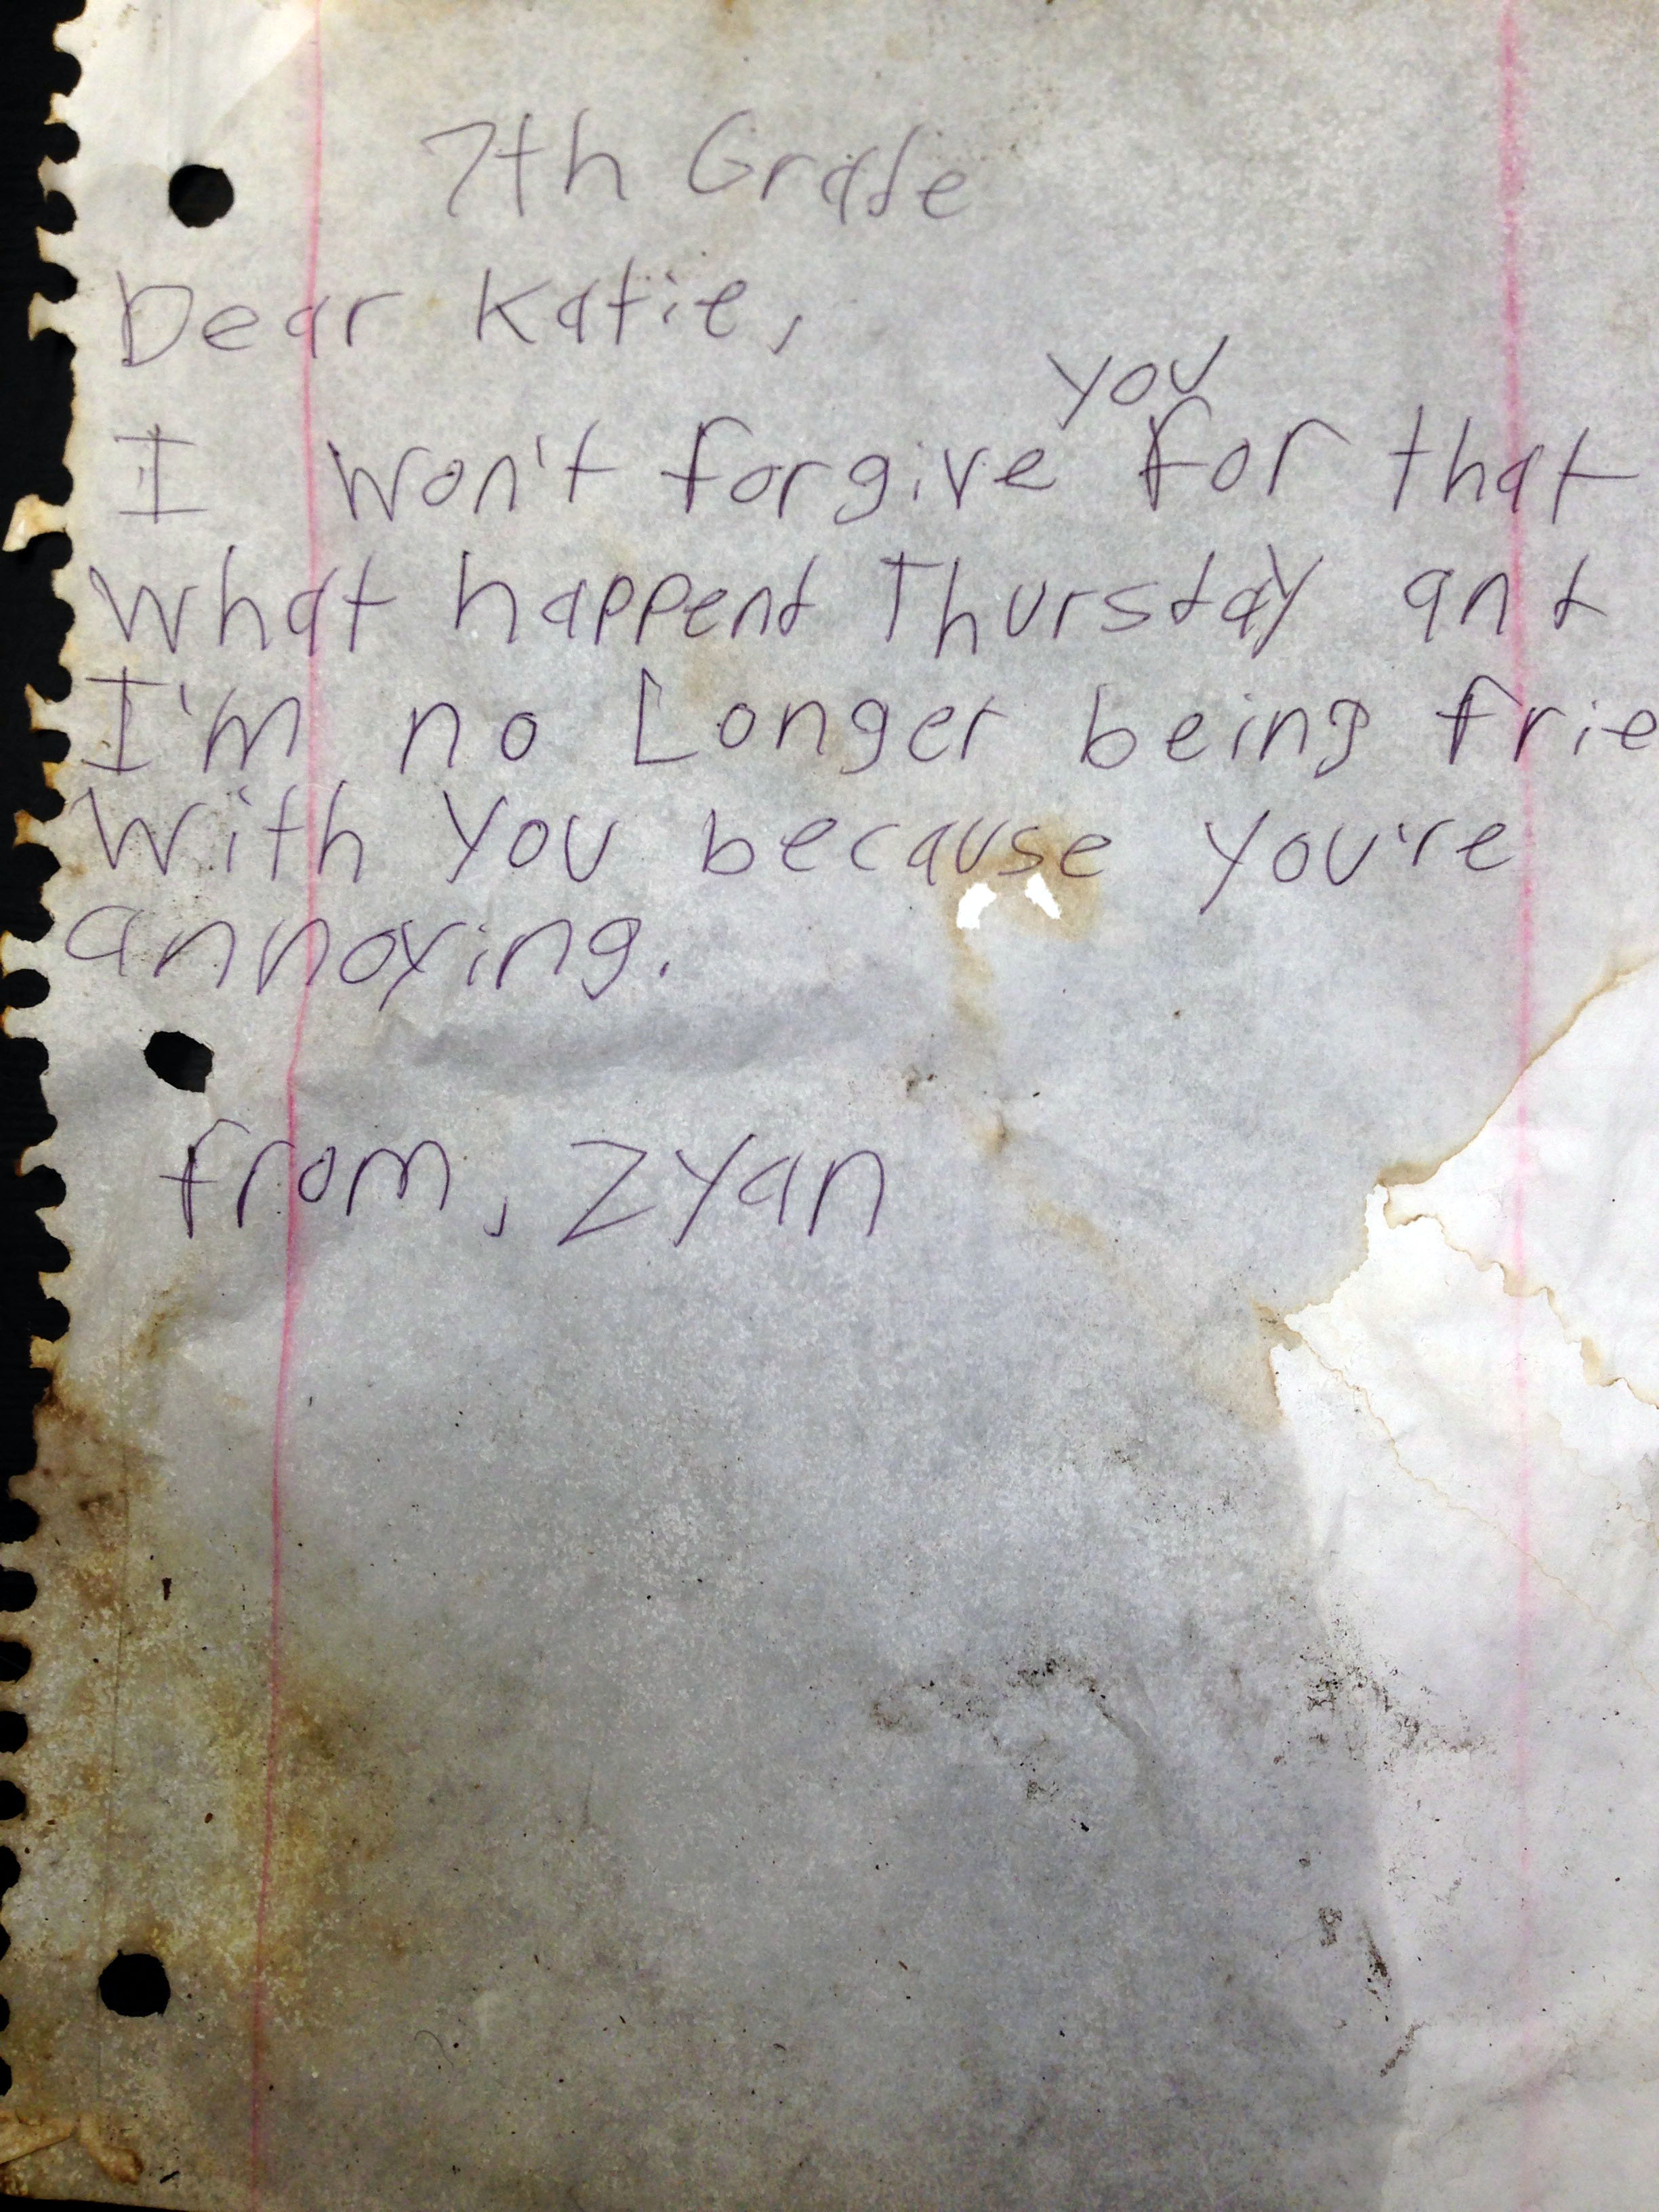 7th Grade
Dear Katie,
you
I won't forgive for that
What happend Thursday and
I'm no Longer being frie
With you because you're
annoying.
from, Zyan